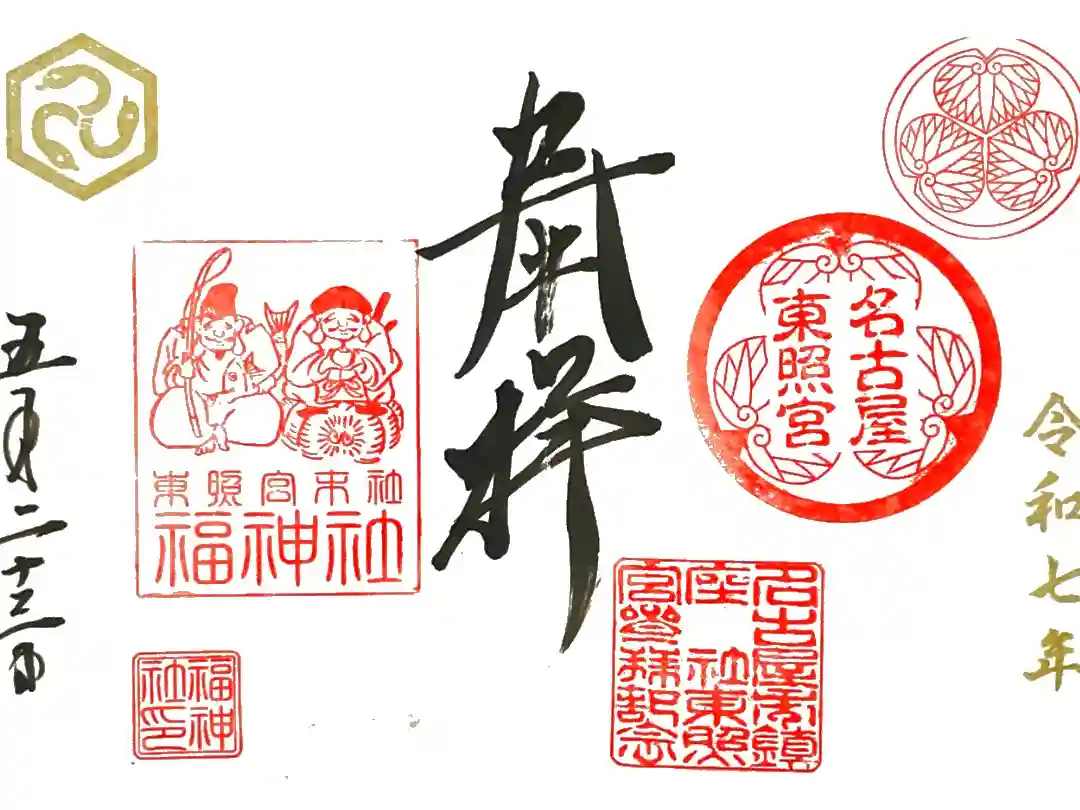 令和七年
名古屋
東照宮
名古屋市鎮
座 社東照
宮參拝記念
奉拝
東照宮末社
福神社
福神
社印
五月二十三日